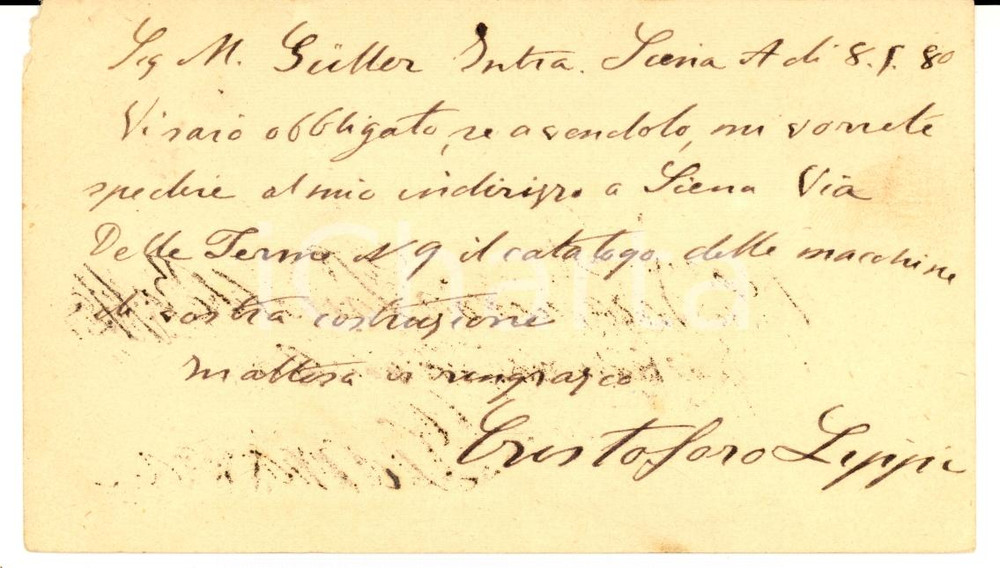 Sig M. Güller Intra. Siena A di 8. 5. 80
Vi saró obbligato, se avendolo, mi vorrete
spedire al mio indirizzo a Siena Via
Delle Terme N 9 il catalogo delle macchine
di vostra costruzione
In attesa vi ringrazio
Cristoforo Lippi
iCharta